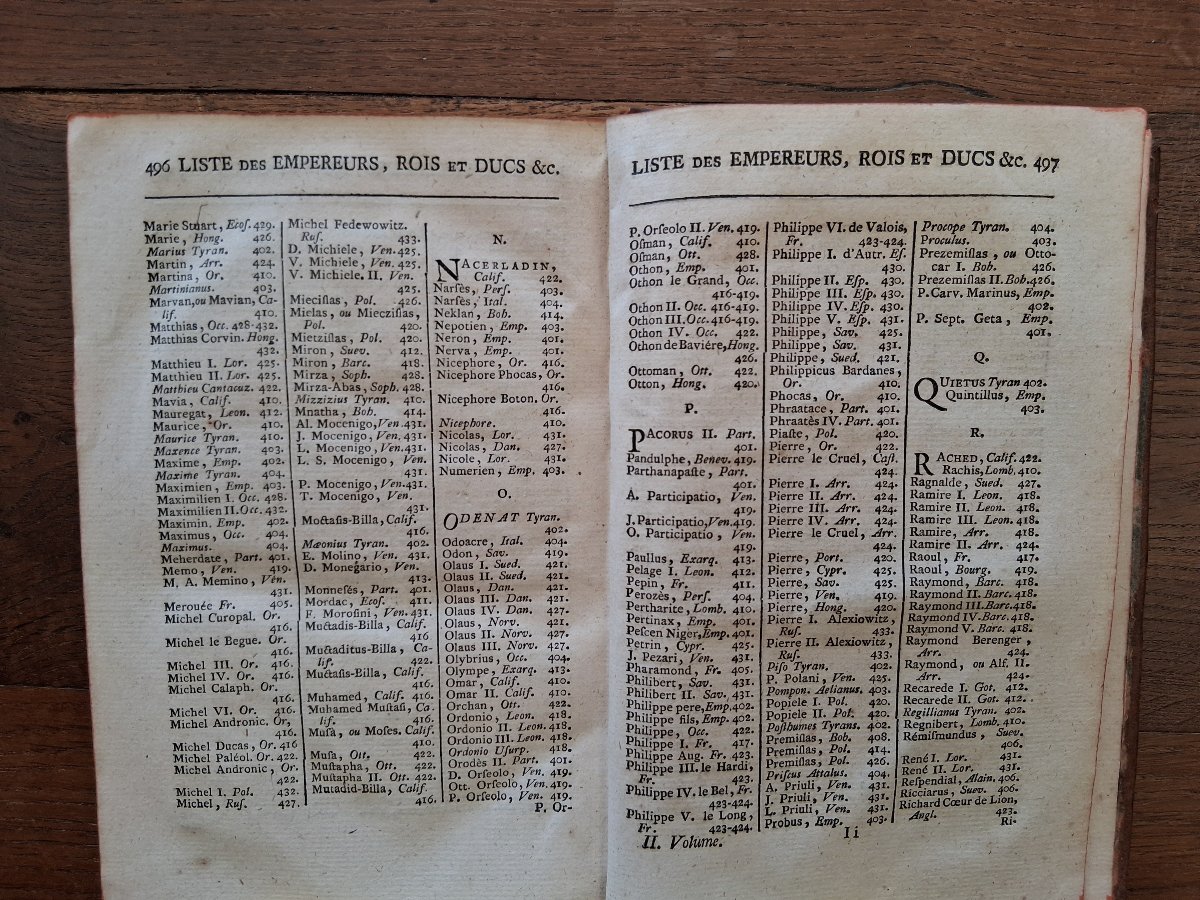 496 LISTE DES EMPEREURS, ROIS ET DUCS &c.
Marie Stuart, Ecos. 429.
Marie, Hong. 426.
Marius Tyran. 402.
Martin, Arr. 424.
Martina, Or. 410.
Martinianus. 403.
Marvan, ou Mavian, Ca-
lif. 410.
Matthias, Occ. 428-432.
Matthias Corvin. Hong.
432.
Matthieu I. Lor. 425.
Matthieu II. Lor. 425.
Matthieu Cantacuz. 422.
Mavia, Calif. 410.
Mauregat, Leon. 412.
Maurice, Or. 410.
Maurice Tyran. 410.
Maxence Tyran. 403.
Maxime, Emp. 402.
Maxime Tyran. 404.
Maximien, Emp. 403.
Maximilien I. Occ. 428.
Maximilien II. Occ. 432.
Maximin. Emp. 402.
Maximus, Occ. 404.
Maximus. 404.
Meherdate, Part. 401.
Memo, Ven. 419.
M. A. Memino, Ven.
431.
Merouée Fr. 405.
Michel Curopal. Or.
416.
Michel le Begue. Or.
416.
Michel III. Or. 416.
Michel IV. Or. 416.
Michel Calaph. Or.
416.
Michel VI. Or. 416.
Michel Andronic. Or,
416.
Michel Ducas, Or. 416
Michel Paléol. Or. 422.
Michel Andronic, Or.
422.
Michel I. Pol. 432.
Michel, Ruſ. 427.
Michel Fedewowitz.
Ruſ. 433.
D. Michiele, Ven. 425.
V. Michiele, Ven. 425.
V. Michiele. II. Ven.
425.
Mieciſlas, Pol. 426.
Mielas, ou Miecziſlas,
Pol. 420.
Mietziſlas, Pol. 420.
Miron, Suev. 412.
Miron, Barc. 418.
Mirza, Soph. 428.
Mirza-Abas, Soph. 428.
Mizzizius Tyran. 410.
Mnatha, Boh. 414.
Al. Mocenigo, Ven. 431.
J. Mocenigo, Ven. 431.
L. Mocenigo, Ven. 431.
L. S. Mocenigo, Ven.
431.
P. Mocenigo, Ven. 431.
T. Mocenigo, Ven.
431.
Moctaſis-Billa, Calif.
416.
Mæonius Tyran. 402.
E. Molino, Ven. 431.
D. Monegario, Ven.
413.
Monneſés, Part. 401.
Mordac, Ecoſ. 411.
F. Moroſini, Ven. 431.
Muctadis-Billa, Calif.
416
Muctaditus-Billa, Ca-
lif. 422.
Muctaſis-Billa, Calif.
416.
Muhamed, Calif. 416.
Muhamed Muſtaſi, Ca
lif. 416.
Muſa, ou Moſes. Calif.
410.
Muſa, Ott. 422.
Muſtapha, Ott. 422.
Muſtapha II. Ott. 422.
Mutadid-Billa, Calif.
416.
N.
NACERLADIN,
Calif. 422.
Narſès, Perſ. 403.
Narſès, Ital. 404.
Neklan, Boh. 414.
Nepotien, Emp. 403.
Neron, Emp. 401.
Nerva, Emp. 401.
Nicephore, Or. 416.
Nicephore Phocas, Or.
416.
Nicephore Boton. Or.
416.
Nicephore. 410.
Nicolas, Lor. 431.
Nicolas, Dan. 427.
Nicole, Lor. 431.
Numerien, Emp. 403.
O.
ODENAT Tyran.
402.
Odoacre, Ital. 404.
Odon, Sav. 419.
Olaus I. Sued. 421.
Olaus II. Sued. 421.
Olaus, Dan. 421.
Olaus III. Dan. 421.
Olaus IV. Dan. 427.
Olaus, Norv. 421.
Olaus II. Norv. 427.
Olaus III. Norv. 427.
Olybrius, Occ. 404.
Olympe, Exarq. 413.
Omar, Calif. 410.
Omar II. Calif. 410.
Orchan, Ott. 422.
Ordonio, Leon. 418.
Ordonio II. Leon. 418.
Ordonio III. Leon. 418.
Ordonio Uſurp. 418.
Orodès II. Part. 401.
D. Orſeolo, Ven. 419.
Ott. Orſeolo, Ven. 419.
P. Orſeolo, Ven. 419.
P. Or-
LISTE DES EMPEREURS, ROIS ET DUCS &c. 497
P. Orſeolo II. Ven. 419.
Oſman, Calif. 410.
Oſman, Ott. 428.
Othon, Emp. 401.
Othon le Grand, Occ.
416-419.
Othon II. Occ. 416-419.
Othon III. Occ. 416-419.
Othon IV. Occ. 422.
Othon de Baviére, Hong.
426.
Ottoman, Ott. 422.
Otton, Hong. 420.
P.
PACORUS II. Part.
401.
Pandulphe, Benev. 419.
Parthanapaſte, Part.
401.
A. Participatio, Ven.
419.
J. Participatio, Ven. 419.
O. Participatio, Ven.
419.
Paullus, Exarq. 413.
Pelage I. Leon. 412.
Pepin, Fr. 411.
Perozès, Perſ. 404.
Pertharite, Lomb. 410.
Pertinax, Emp. 401.
Peſcen Niger, Emp. 401.
Petrin, Cypr. 425.
J. Pezari, Ven. 431.
Pharamond, Fr. 405.
Philibert, Sav. 431.
Philibert II. Sav. 431.
Philippe pere, Emp. 402.
Philippe fils, Emp. 402.
Philippe, Occ. 422.
Philippe I. Fr. 417.
Philippe Aug. Fr. 423.
Philippe III. le Hardi,
Fr. 423.
Philippe IV. le Bel, Fr.
423-424.
Philippe V. le Long,
Fr. 423-424.
Philippe VI. de Valois,
Fr. 423-424.
Philippe I. d'Autr. Eſ.
430.
Philippe II. Eſp. 430.
Philippe III. Eſp. 430.
Philippe IV. Eſp. 430.
Philippe V. Eſp. 431.
Philippe, Sav. 425.
Philippe, Sav. 431.
Philippe, Sued. 421.
Philippicus Bardanes,
Or. 410.
Phocas, Or. 410.
Phraatace, Part. 401.
Phraatès IV. Part. 401.
Piaſte, Pol. 420.
Pierre, Or. 422.
Pierre le Cruel, Caſt.
424.
Pierre I. Arr. 424.
Pierre II. Arr. 424.
Pierre III. Arr. 424.
Pierre IV. Arr. 424.
Pierre le Cruel, Arr.
424.
Pierre, Port. 420.
Pierre, Cypr. 425.
Pierre, Sav. 425.
Pierre, Ven. 419.
Pierre, Hong. 420.
Pierre I. Alexiowitz,
Ruſ. 433.
Pierre II. Alexiowitz,
Ruſ. 433.
Piſo Tyran. 402.
P. Polani, Ven. 425.
Pompon. Aelianus. 403.
Popiele I. Pol. 420.
Popiele II. Pol. 420.
Poſthumes Tyrans. 402.
Premiſlas, Boh. 408.
Premiſlas, Pol. 414.
Premiſlas, Pol. 426.
Priſcus Attalus. 404.
A. Priuli, Ven. 431.
J. Priuli, Ven. 431.
L. Priuli, Ven. 431.
Probus, Emp. 403.
Procope Tyran. 404.
Proculus. 403.
Prezemiſlas, ou Otto-
car I. Boh. 426.
Prezemiſlas II. Boh. 426.
P. Carv. Marinus, Emp.
402.
P. Sept. Geta, Emp.
401.
Q.
QUIETUS Tyran 402.
Quintillus, Emp.
403.
R.
RACHED, Calif. 422.
Rachis, Lomb. 410.
Ragnalde, Sued. 427.
Ramire I. Leon. 418.
Ramire II. Leon. 418.
Ramire III. Leon. 418.
Ramire, Arr. 424.
Ramire II. Arr. 424.
Raoul, Fr. 417.
Raoul, Bourg. 419.
Raymond, Barc. 418.
Raymond II. Barc. 418.
Raymond III. Barc. 418.
Raymond IV. Barc. 418.
Raymond V. Barc. 418.
Raymond Berenger,
Arr. 424.
Raymond, ou Alf. II.
Arr. 424.
Recarede I. Got. 412.
Recarede II. Got. 412.
Regillianus Tyran. 402.
Regnibert, Lomb. 410.
Rémiſmundus, Suev.
406.
René I. Lor. 431.
René II. Lor. 431.
Reſpendial, Alain. 406.
Ricciarus, Suev. 406.
Richard Cœur de Lion,
Angl. 423.
Ri-
II. Volume. Ii